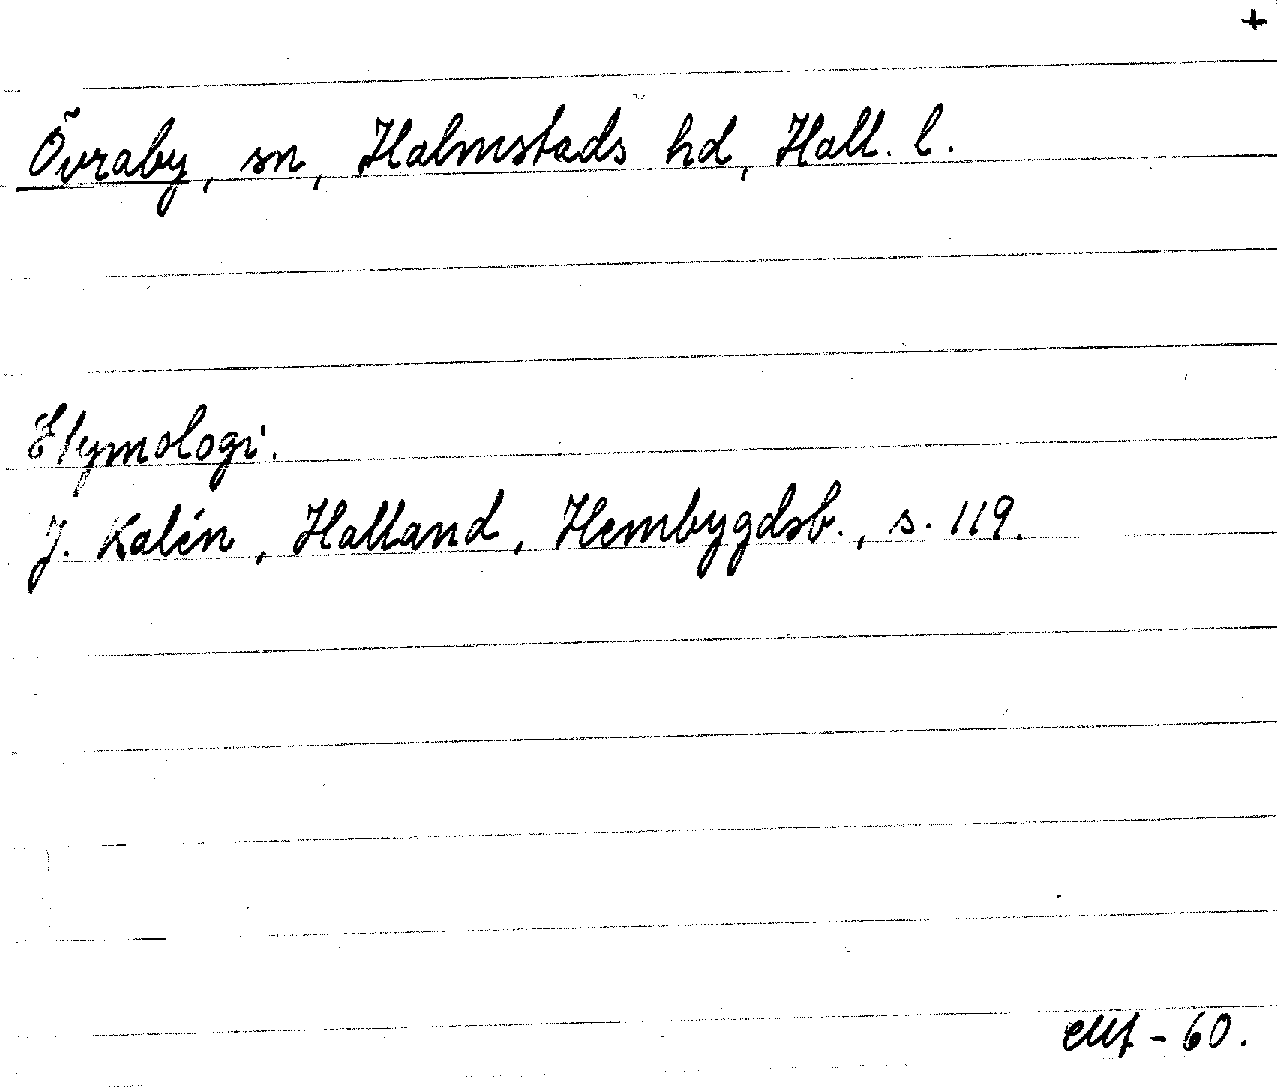 +
Övraby, sn, Halmstads hd, Hall. l.
Etymologi.
J. Kalén, Halland, Hembygdsb., s. 119.
- 60.